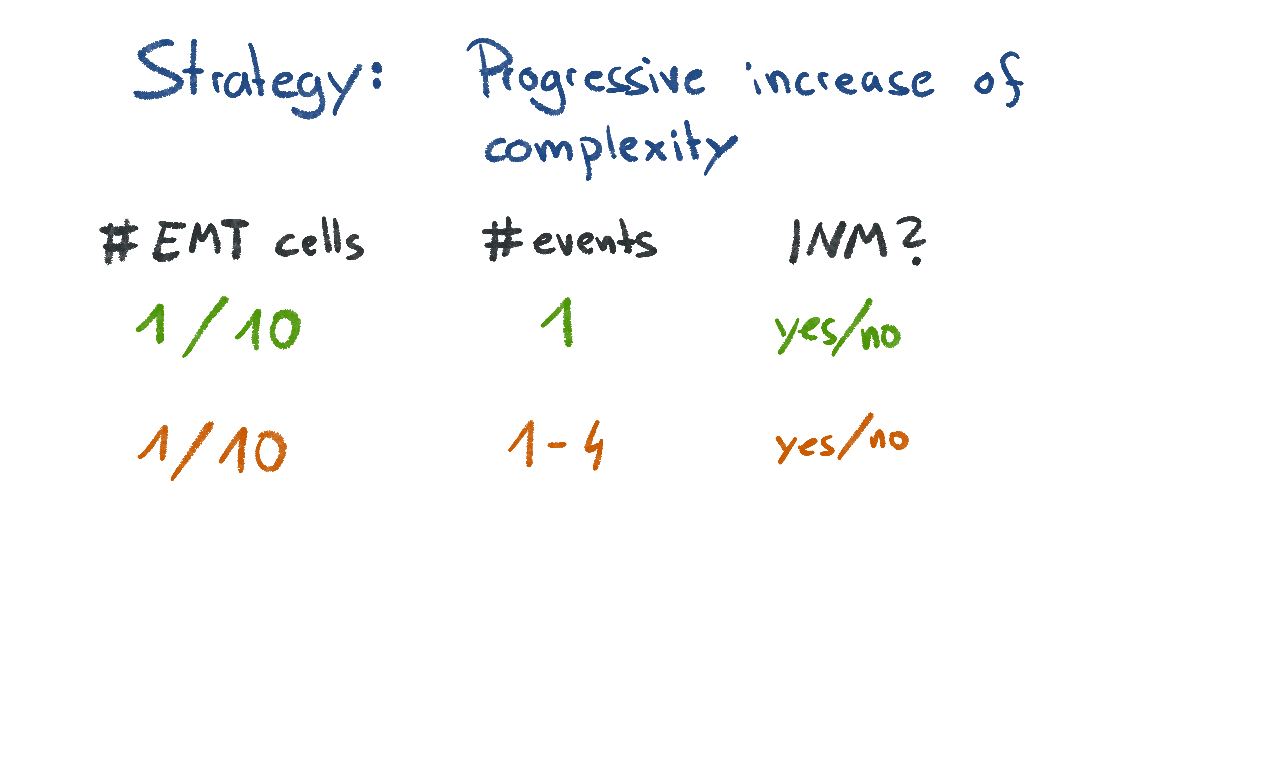 Strategy: Progressive increase of
complexity
# EMT cells # events INM?
1/10 1 yes/no
1/10 1-4 yes/no